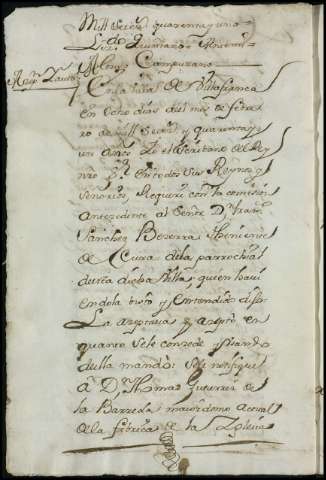 Mill Setez.s quarenta y uno
L.do Quintano Ante mi
Alonso Campuzano
En la Villa de Villafranca
en ocho dias del mes de febre
ro de mill Setez.s y quarenta y
un años Yo el escribano del Rey
nro S.r en todos sus Reynos y
Señorios, Requeri con la comision
antezedente al Señor D.n
Sanchez Bezerra theniente
de Cura de la parrochial
de esta dicha Villa, quien havi
endola visto y entendido dijo
La azeptava y azepto en
quanto se le conzede y usando
de ella mando Se Notifique
a D.n Thomas Gutierrez de
la Barreda mayordomo actual
de la fabrica de la Iglesia